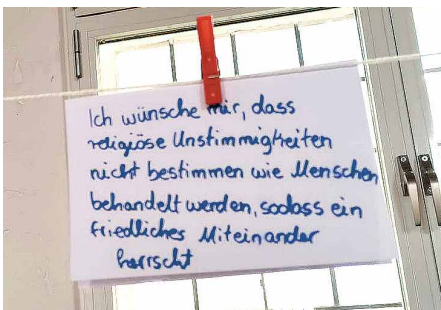 Ich wünsche mir, dass
religiöse Unstimmigkeiten
nicht bestimmen wie Menschen
behandelt werden, sodass ein
friedliches Miteinander
herrscht